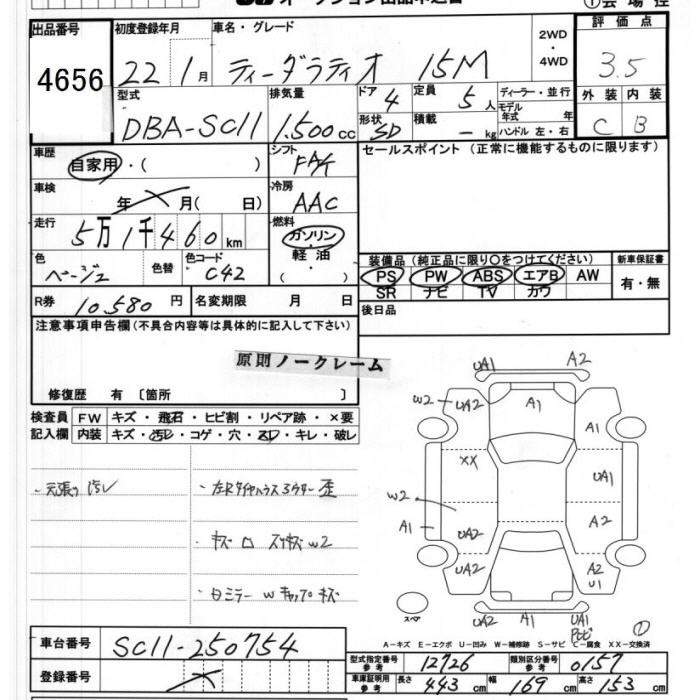 出品番号 初度登録年月 車名・グレード 2WD・4WD 評価点
4656 22 1月 ティーダラティオ 15M 3.5
型式 排気量 ドア 4 定員 5人 ディーラー・並行 外装 内装
DBA-SC11 1.500cc 形状 SD 積載 -kg モデル年式 年 C B
ハンドル 左・右
車歴 シフト セールスポイント (正常に機能するものに限ります)
自家用・( ) FAT
車検 冷房
年 月( 日) AAC
走行 燃料
5万1千460km ガソリン・軽油・( )
色 色替 色コード 装備品 (純正品に限り○をつけてください) 新車保証書
ベージュ C42 PS PW ABS エアB AW 有・無
SR ナビ TV カワ
R券 10.580円 名変期限 月 日 後日品
注意事項申告欄(不具合内容等は具体的に記入して下さい)
原則ノークレーム
修復歴 有 〔箇所 〕
検査員 FW キズ・飛石・ヒビ割・リペア跡・×要
記入欄 内装 キズ・汚レ・コゲ・穴・スレ・キレ・破レ
UA1 A2
W2 UA2 A1 A1
XX UA1
W2 A1 UA2 A2
UA2 A2 U1
スペア UA2 A1 UA1
・天張り汚レ
W2
・日ミラー W キャップキズ
A-キズ E-エクボ U-凹み W-補修跡 S-サビ C-腐食 XX-交換済
車台番号 SC11-250754
型式指定番号 参考 12726 類別区分番号 参考 0157
登録番号
車庫証明用 参考 長さ 443cm 幅 169cm 高さ 153cm